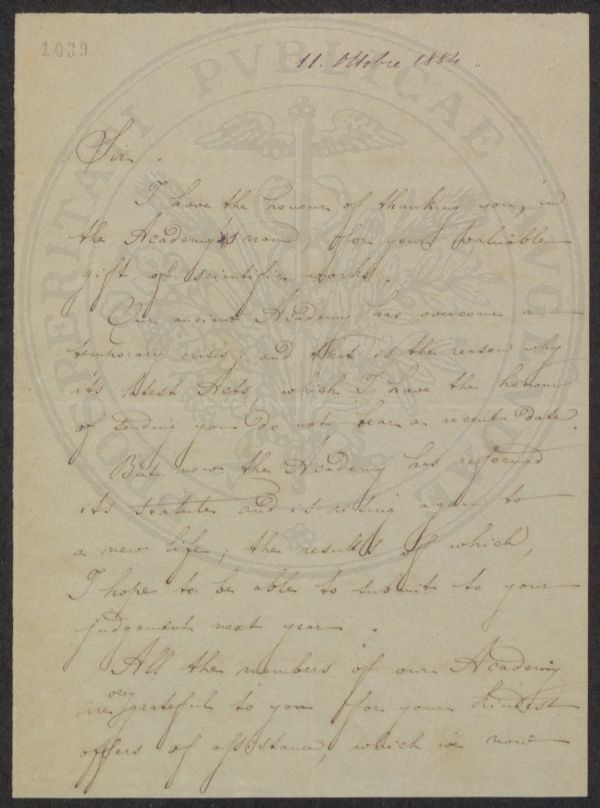 1039
11. Ottobre 1884.
PROSPERITATI PVBLICAE AVGENDAE
Sir.
I have the honour of thanking you, in
the Academy's name, for your valuable
gift of scientific works.
Our ancient Academy has overcome a
temporary crisis; and that is the reason why
its latest Acts, which I have the honour
of sending you do not bear a recent date.
But now the Academy has reformed
its statutes and is rising again to
a new life; the results of which,
I hope to be able to submit to your
judgement next year.
All the members of our Academy
are very grateful to you for your kindest
offers of assistance, which we now